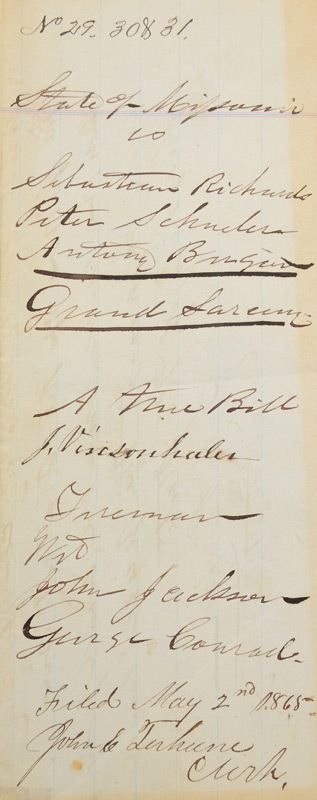 No 29. 30 & 31.
State of Missouri
vs
Sebastian Richards
Peter Schneder
Antony Burger
Grand Larceny
A True Bill
J. Vinsonhaler
Foreman
Wit
John Jackson
George Conrad.
Filed May 2nd 1865
John E Terhune
Clerk.